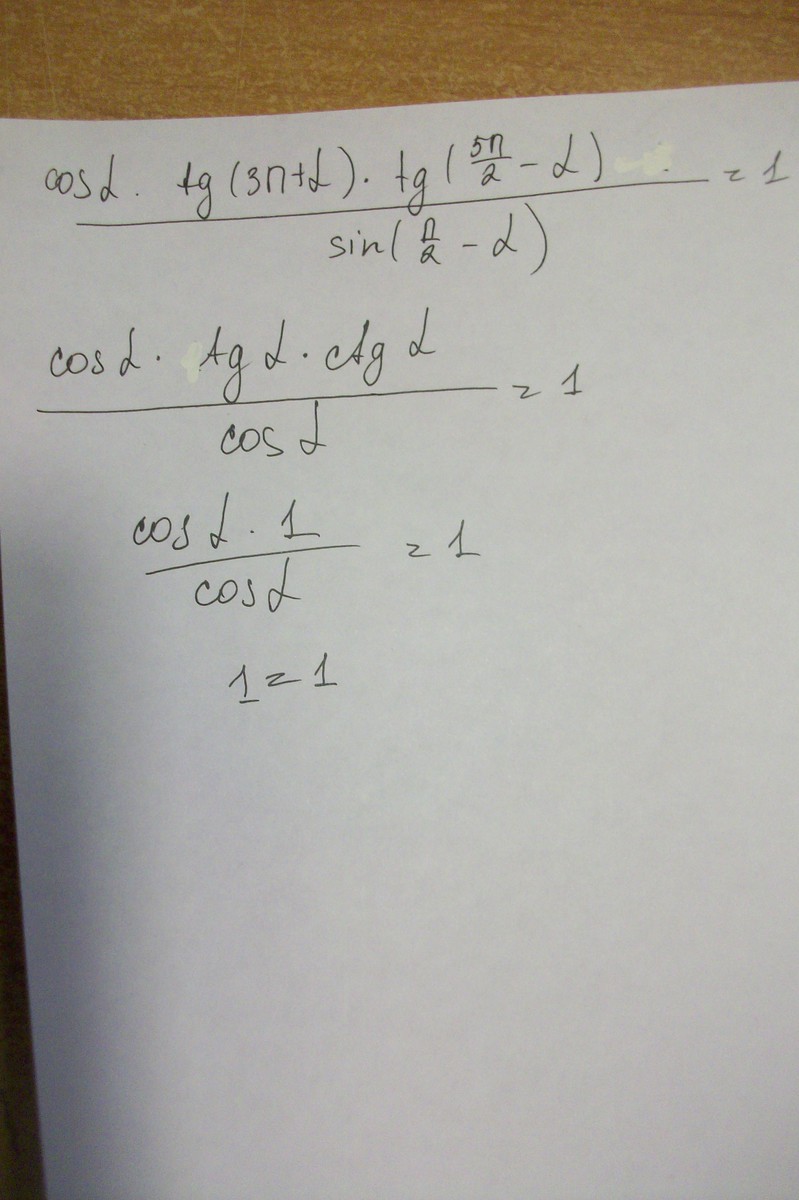 cos α · tg (3π+α) · tg (5π/2 - α) = 1
sin(π/2 - α)
cos α · tg α · ctg α = 1
cos α
cos α · 1 = 1
cos α
1 = 1